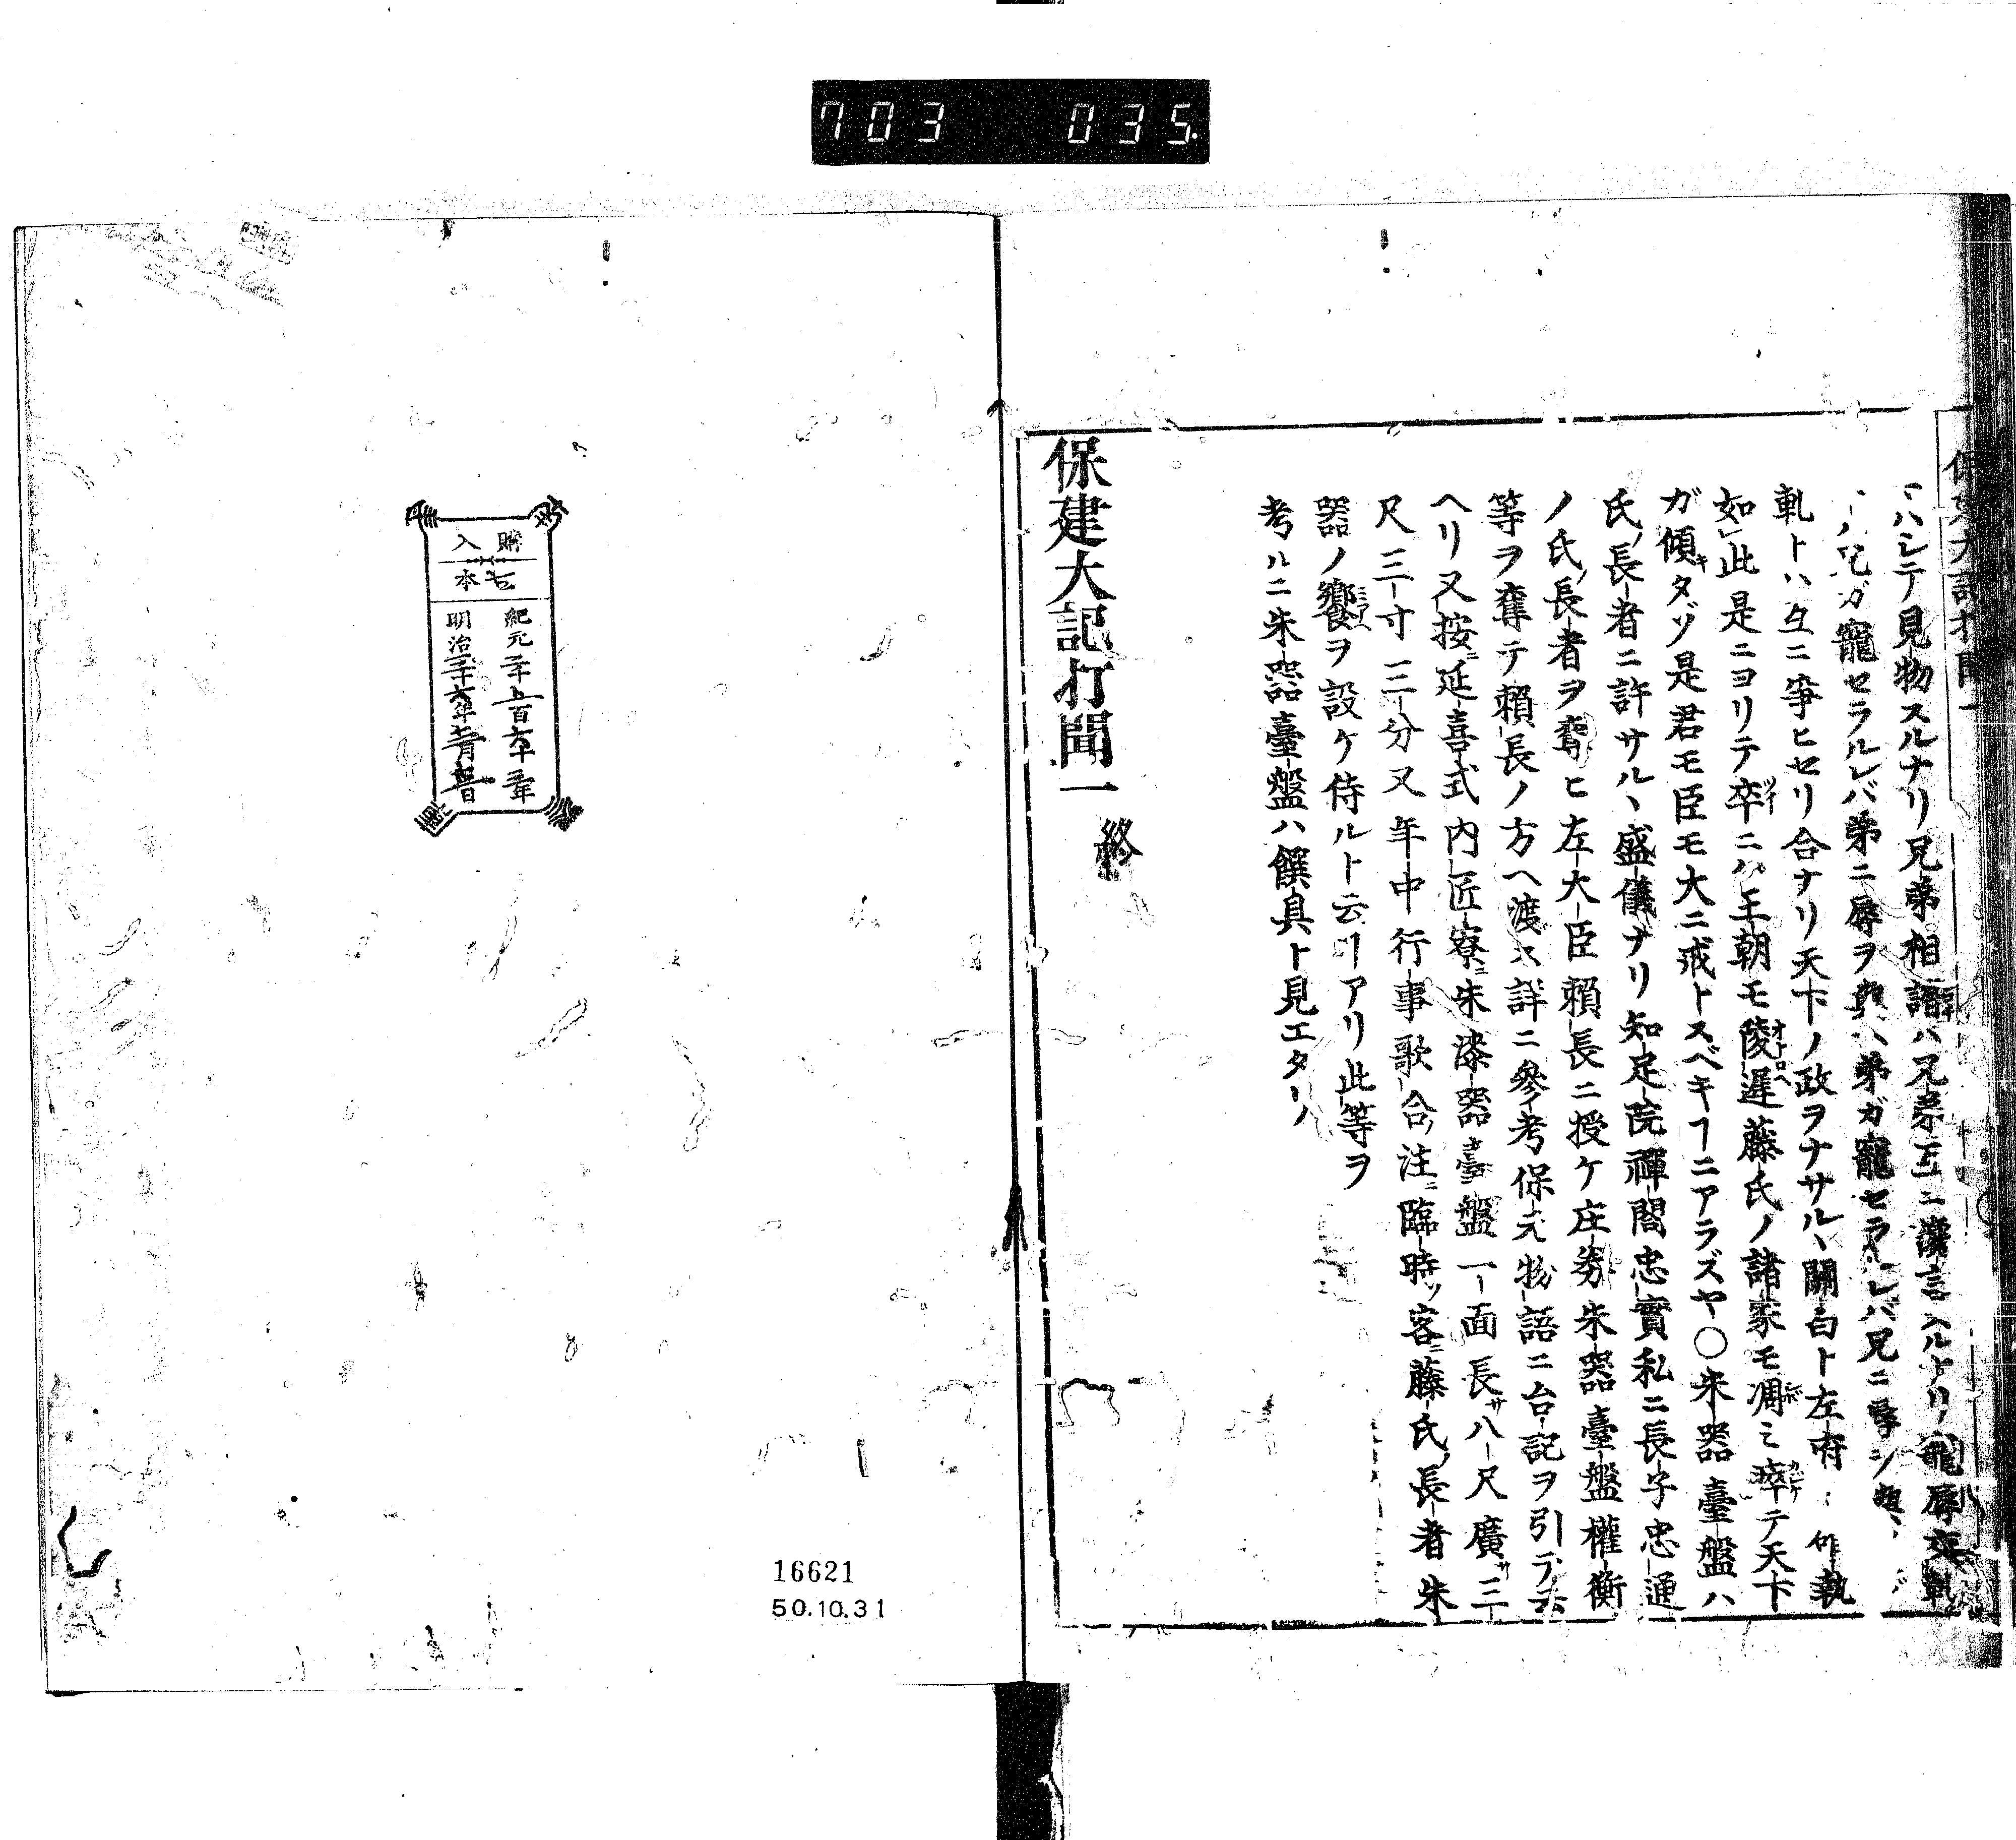 703 035
ハシテ見物スルナリ兄弟相譖ハ兄弟互ニ讒言入ルナリ寵辱交軌
兄ガ寵セラルレバ弟ニ辱ヲ與ヘ弟ガ寵セラルレバ兄ニ辱シ
軋トハ互ニ爭ヒセリ合ナリ天下ノ政ヲナサルヽ關白ト左府
如此是ニヨリテ卒ニハ王朝モ陵遲藤氏ノ諸家モ凋ミ瘁テ天下
ガ傾タゾ是君モ臣モ大ニ戒トスベキヿニアラズヤ〇朱器臺盤ハ
氏ノ長者ニ許サルヽ盛儀ナリ知足院禪閤忠實私ニ長子忠通
ノ氏ノ長者ヲ奪ヒ左大臣頼長ニ授ケ庄券朱器臺盤權衡
等ヲ奪テ頼長ノ方ヘ渡ス詳ニ參考保元物語ニ台記ヲ引テ云
ヘリ又按ニ延喜式内匠寮ニ朱漆器臺盤一面長サ八尺廣サ三
尺三寸三分又年中行事歌合ノ注ニ臨時ノ客ニ藤氏ノ長者朱
器ノ饗ヲ設ケ侍ルト云ヿアリ此等ヲ
考ルニ朱器臺盤ハ饌具ト見エタリ
保建大記打聞一終
購入
七本
紀元二千五百六十三年
明治三十六年
16621
50.10.31